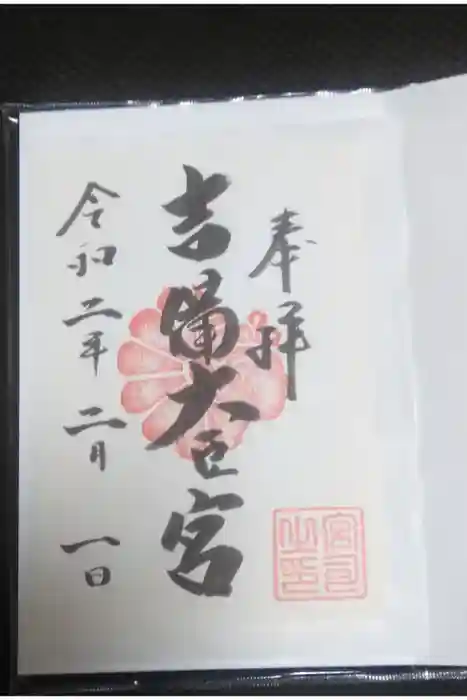 奉拝
吉備大臣宮
令和二年 二月 一日
宮司之印